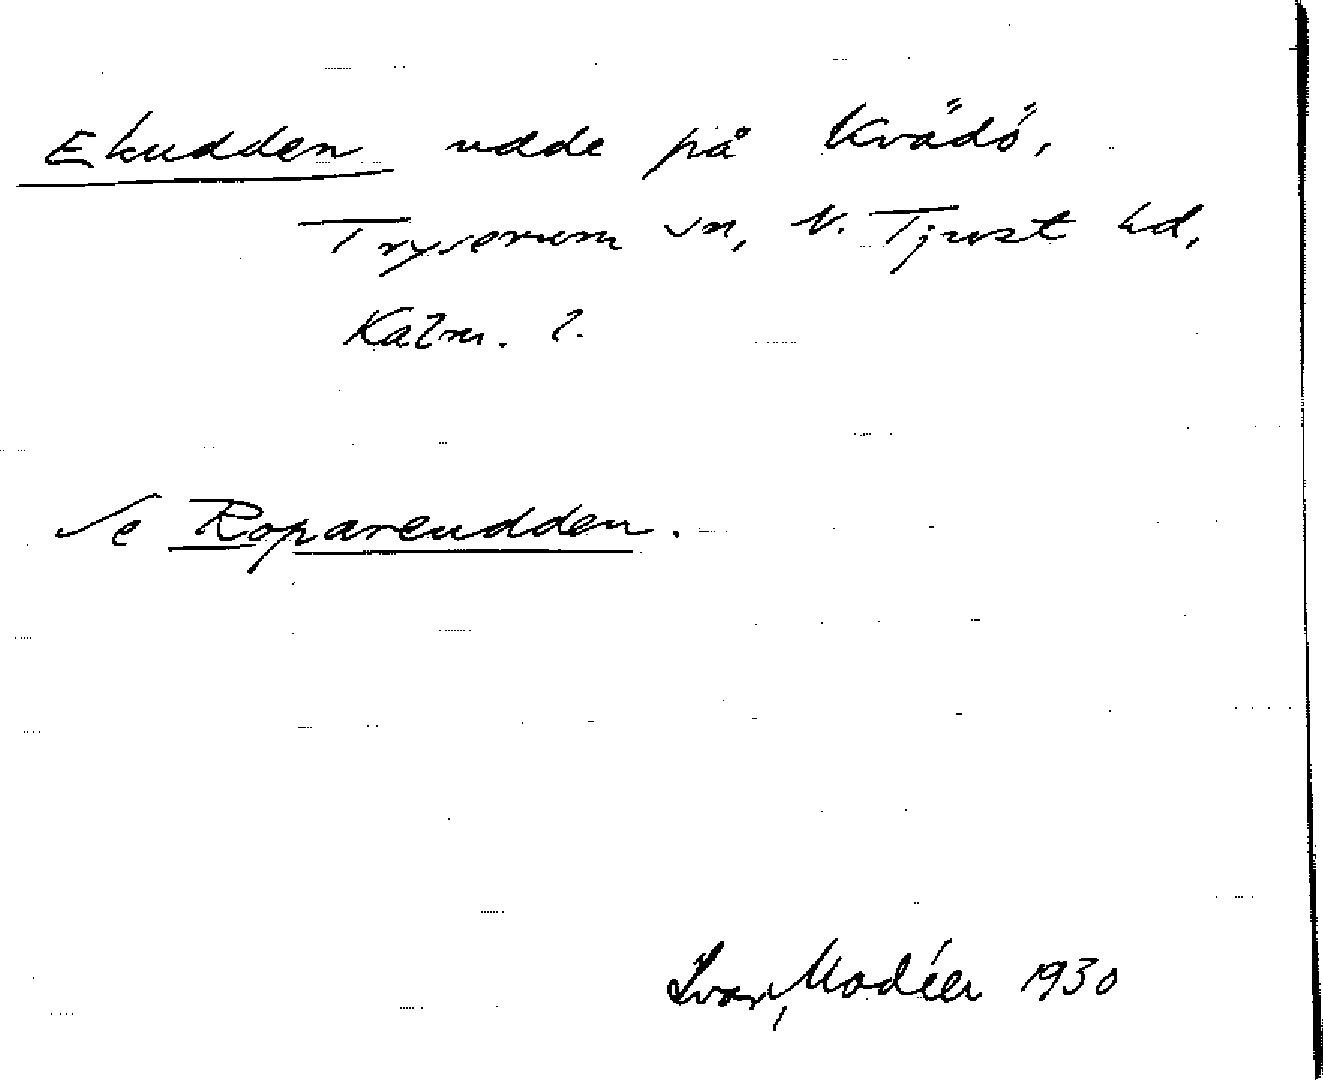 Ekudden udde på Kvädö,
Tryserum sn, N. Tjust hd,
Kalm. l.
Se Ropareudden.
Ivar Modéer 1930